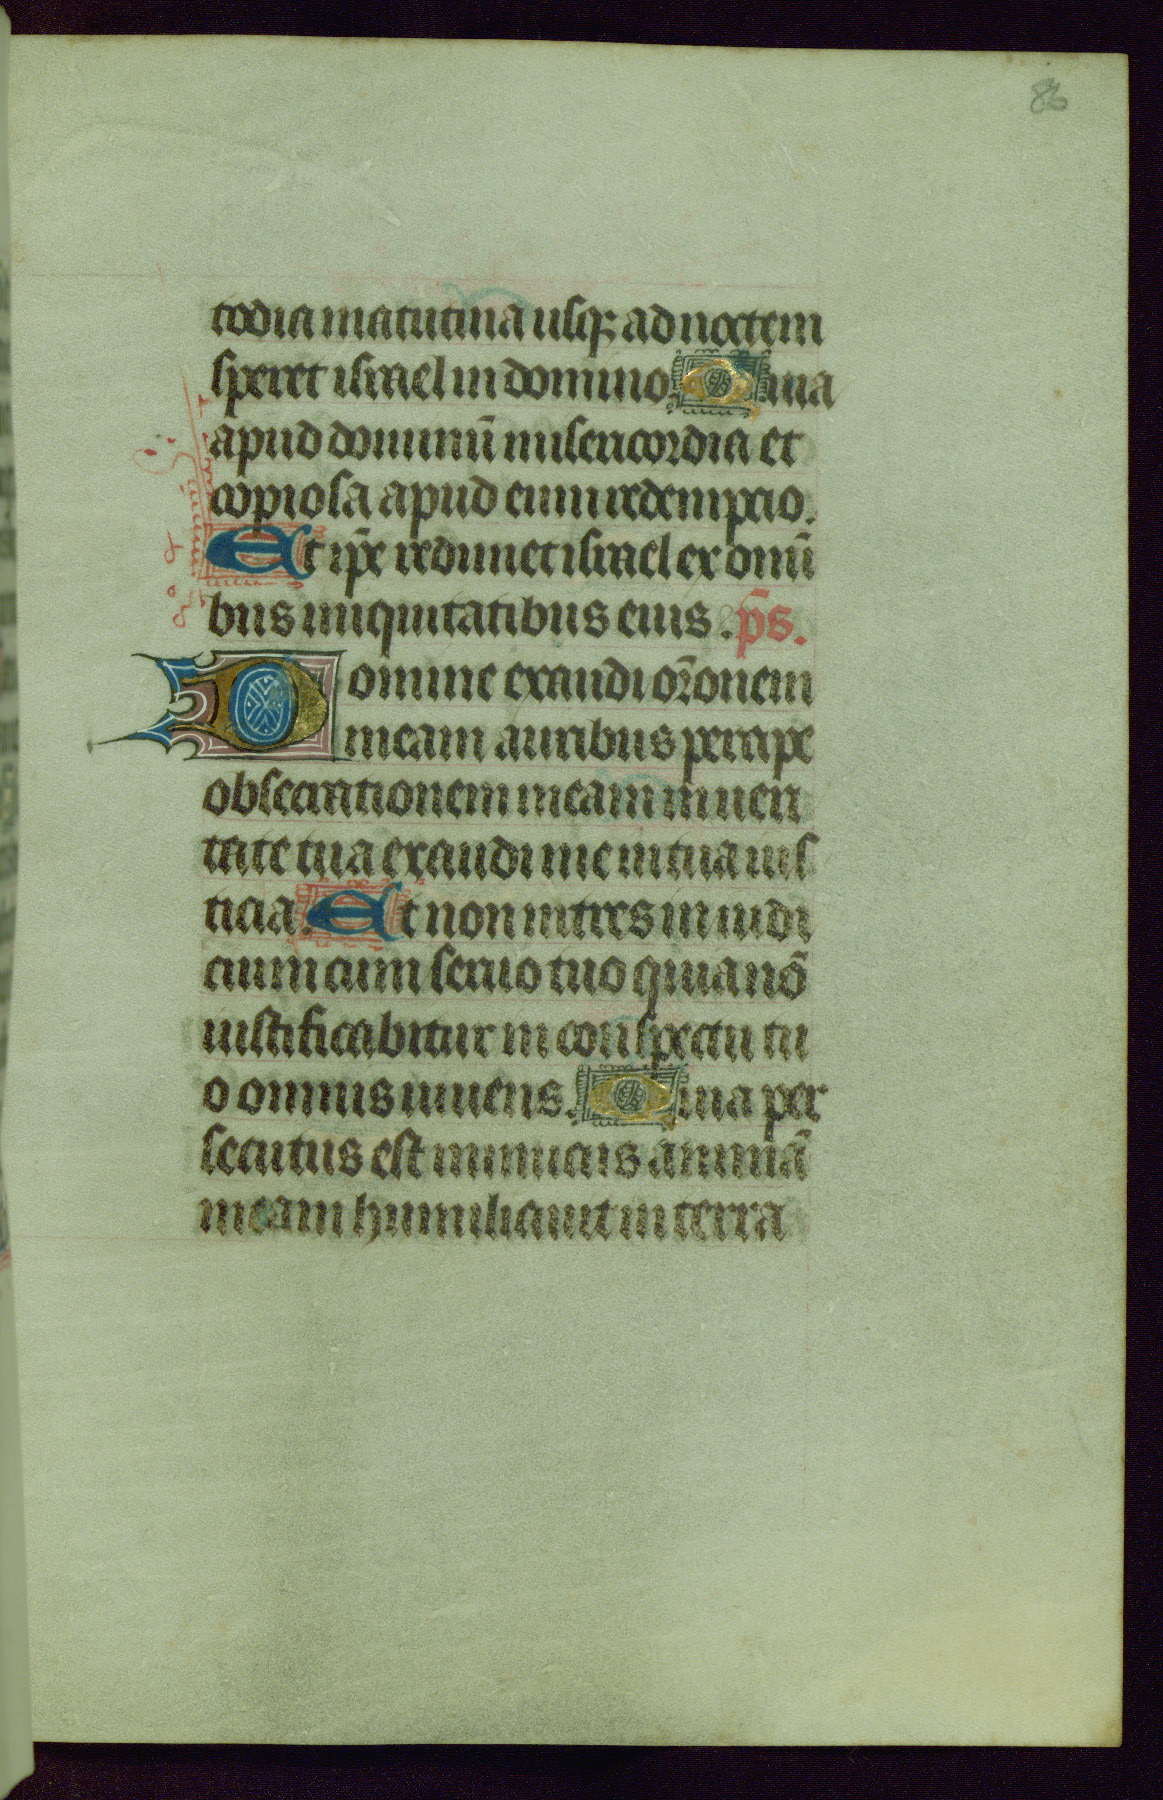 86
todia matutina usq; ad noctem
speret israel in domino. Quia
apud dominū misericordia et
copiosa apud eum redempcio.
Et ip̄e redimet israel ex omī
bus iniquitatibus eius. p̄s.
Domine exaudi or̄onem
meam auribus percipe
obsecrationem meam in ueri
tate tua exaudi me in tua ius
ticia. Et non intres in iudi
cium cum seruo tuo quia nō
iustificabitur in conspectu tu
o omnis uiuens. Quia per
secutus est inimicus animā
meam humiliauit in terra